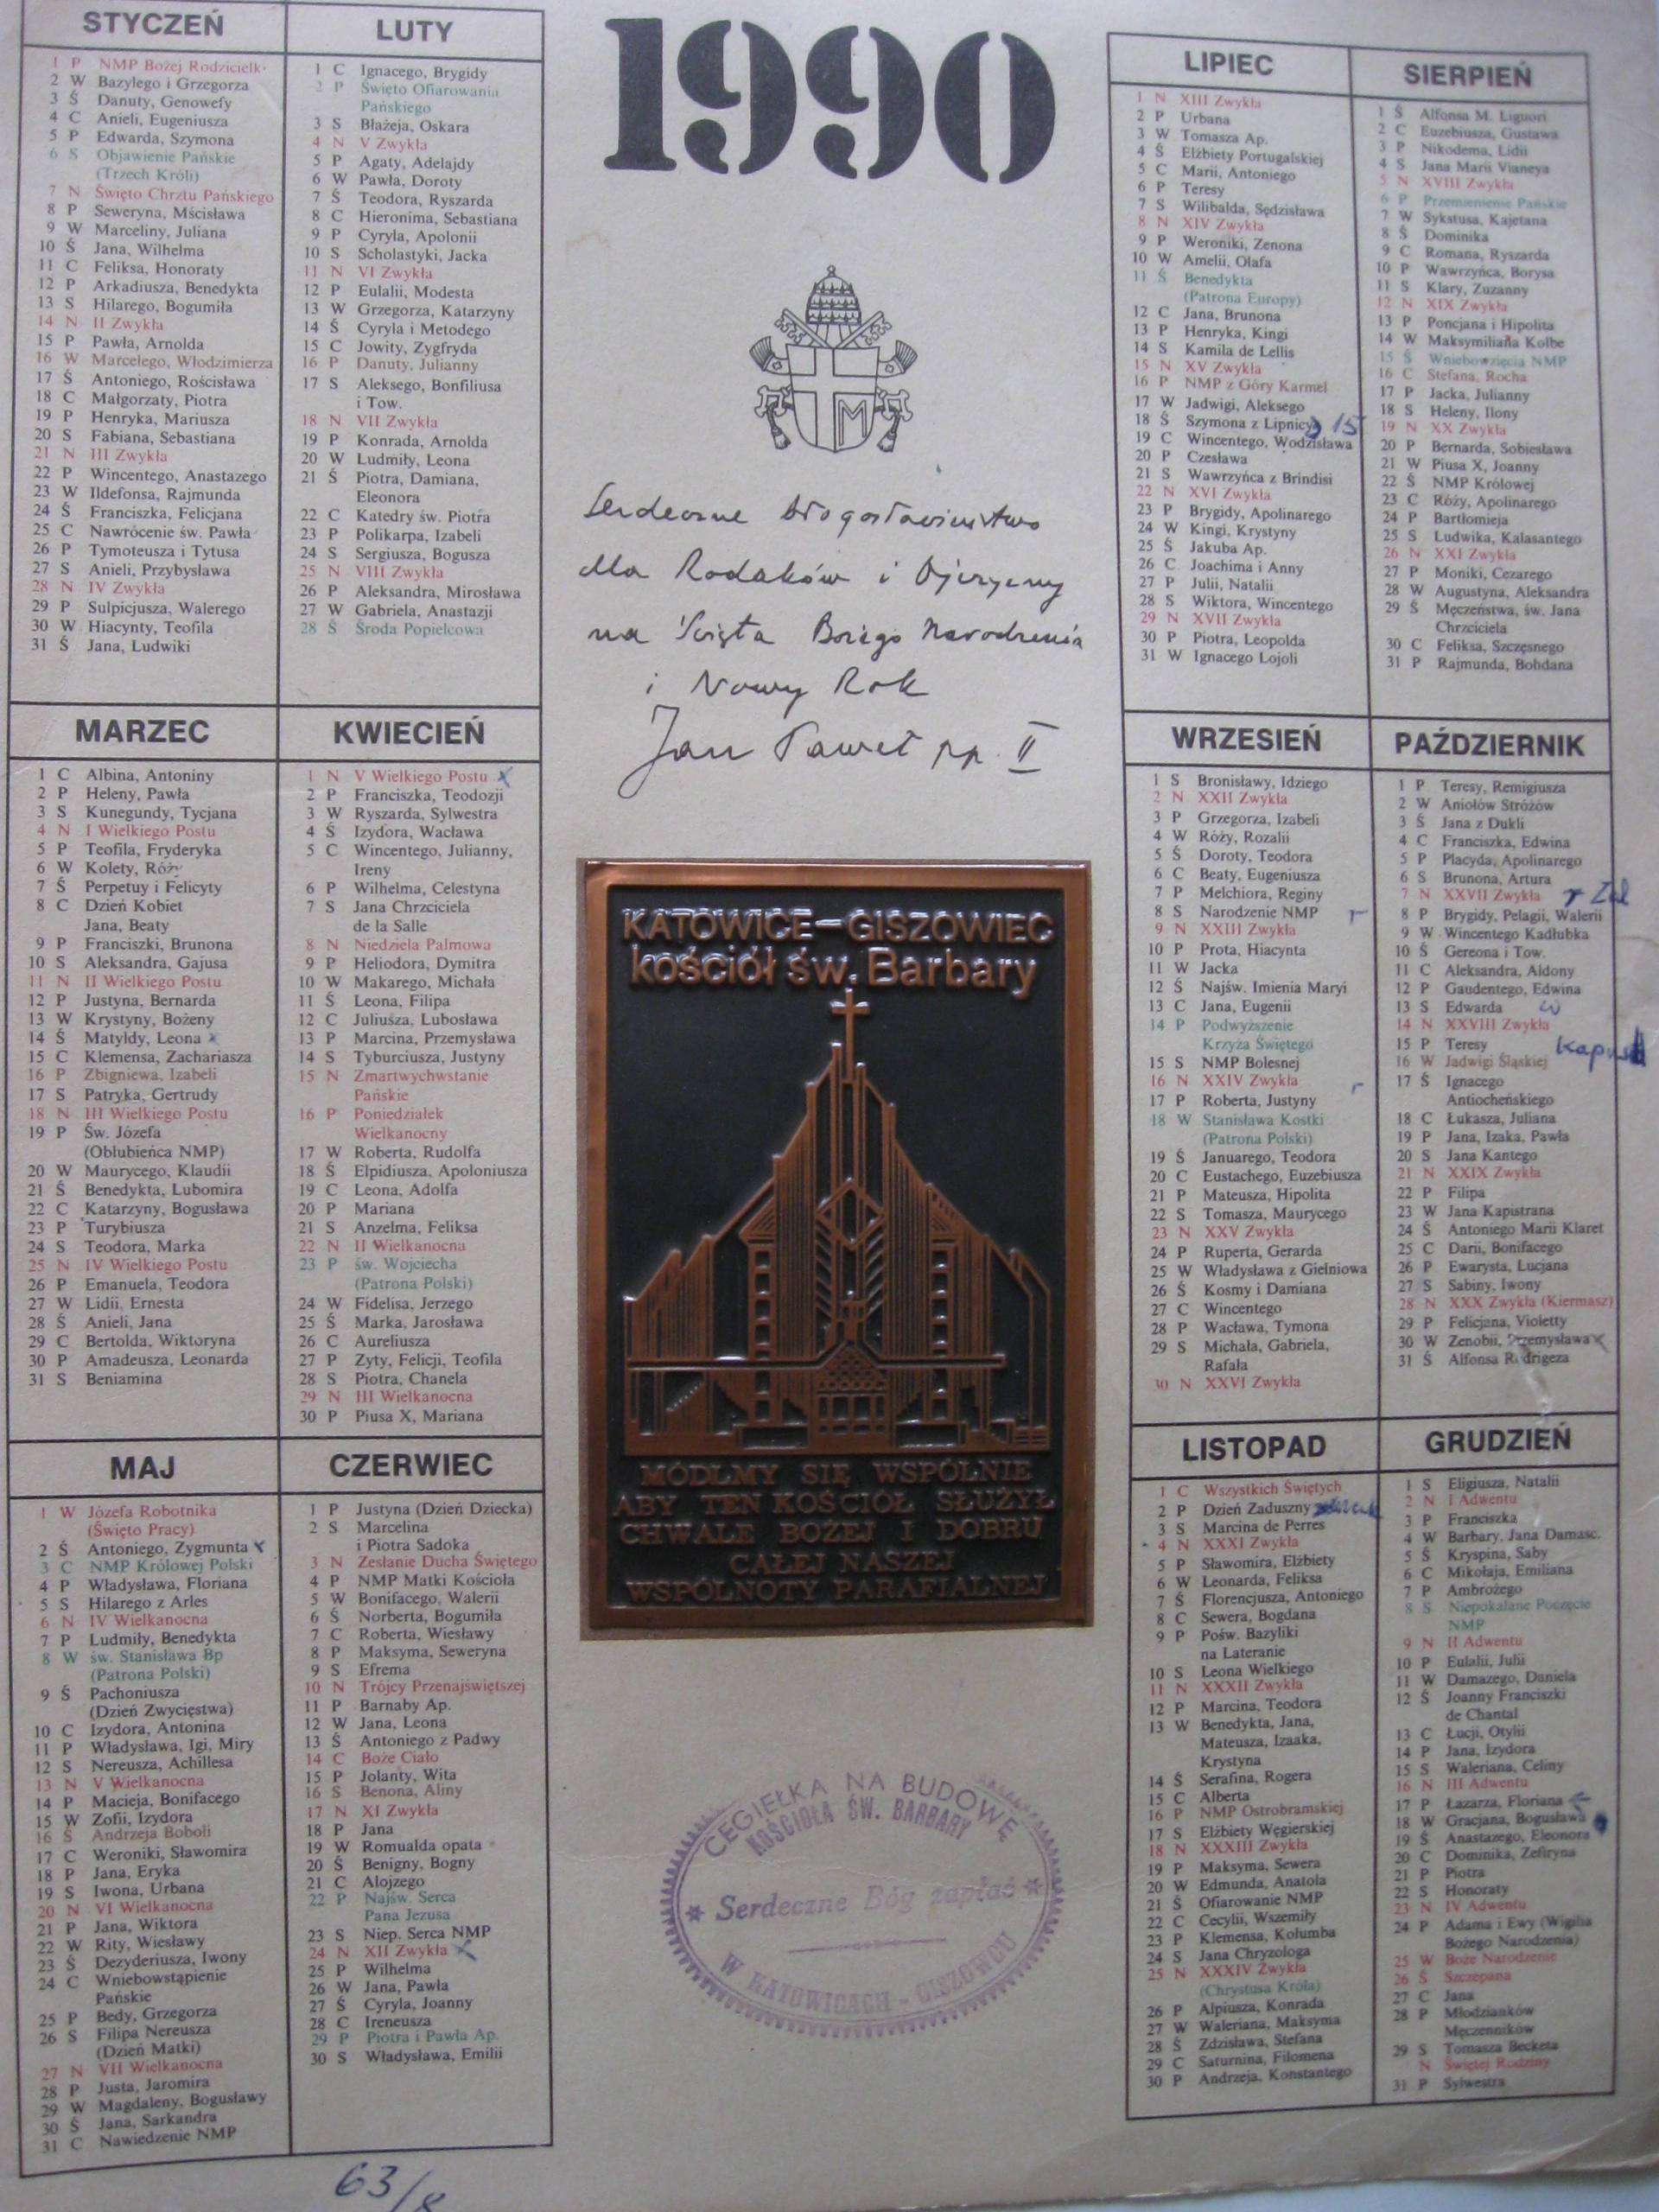 1990
STYCZEŃ
1 P NMP Bożej Rodzicielk
2 W Bazylego i Grzegorza
3 Ś Danuty, Genowefy
4 C Anieli, Eugeniusza
5 P Edwarda, Szymona
6 S Objawienie Pańskie
(Trzech Króli)
7 N Święto Chrztu Pańskiego
8 P Seweryna, Mścisława
9 W Marceliny, Juliana
10 Ś Jana, Wilhelma
11 C Feliksa, Honoraty
12 P Arkadiusza, Benedykta
13 S Hilarego, Bogumiła
14 N II Zwykła
15 P Pawła, Arnolda
16 W Marcelego, Włodzimierza
17 Ś Antoniego, Rościsława
18 C Małgorzaty, Piotra
19 P Henryka, Mariusza
20 S Fabiana, Sebastiana
21 N III Zwykła
22 P Wincentego, Anastazego
23 W Ildefonsa, Rajmunda
24 Ś Franciszka, Felicjana
25 C Nawrócenie św. Pawła
26 P Tymoteusza i Tytusa
27 S Anieli, Przybysława
28 N IV Zwykła
29 P Sulpicjusza, Walerego
30 W Hiacynty, Teofila
31 Ś Jana, Ludwiki
LUTY
1 C Ignacego, Brygidy
2 P Święto Ofiarowania
Pańskiego
3 S Błażeja, Oskara
4 N V Zwykła
5 P Agaty, Adelajdy
6 W Pawła, Doroty
7 Ś Teodora, Ryszarda
8 C Hieronima, Sebastiana
9 P Cyryla, Apolonii
10 S Scholastyki, Jacka
11 N VI Zwykła
12 P Eulalii, Modesta
13 W Grzegorza, Katarzyny
14 Ś Cyryla i Metodego
15 C Jowity, Zygfryda
16 P Danuty, Julianny
17 S Aleksego, Bonfiliusa
i Tow.
18 N VII Zwykła
19 P Konrada, Arnolda
20 W Ludmiły, Leona
21 Ś Piotra, Damiana,
Eleonora
22 C Katedry św. Piotra
23 P Polikarpa, Izabeli
24 S Sergiusza, Bogusza
25 N VIII Zwykła
26 P Aleksandra, Mirosława
27 W Gabriela, Anastazji
28 Ś Środa Popielcowa
MARZEC
1 C Albina, Antoniny
2 P Heleny, Pawła
3 S Kunegundy, Tycjana
4 N I Wielkiego Postu
5 P Teofila, Fryderyka
6 W Kolety, Róży
7 Ś Perpetuy i Felicyty
8 C Dzień Kobiet
Jana, Beaty
9 P Franciszki, Brunona
10 S Aleksandra, Gajusa
11 N II Wielkiego Postu
12 P Justyna, Bernarda
13 W Krystyny, Bożeny
14 Ś Matyldy, Leona x
15 C Klemensa, Zachariasza
16 P Zbigniewa, Izabeli
17 S Patryka, Gertrudy
18 N III Wielkiego Postu
19 P Św. Józefa
(Oblubieńca NMP)
20 W Maurycego, Klaudii
21 Ś Benedykta, Lubomira
22 C Katarzyny, Bogusława
23 P Turybiusza
24 S Teodora, Marka
25 N IV Wielkiego Postu
26 P Emanuela, Teodora
27 W Lidii, Ernesta
28 Ś Anieli, Jana
29 C Bertolda, Wiktoryna
30 P Amadeusza, Leonarda
31 S Beniamina
KWIECIEŃ
1 N V Wielkiego Postu x
2 P Franciszka, Teodozji
3 W Ryszarda, Sylwestra
4 Ś Izydora, Wacława
5 C Wincentego, Julianny,
Ireny
6 P Wilhelma, Celestyna
7 S Jana Chrzciciela
de la Salle
8 N Niedziela Palmowa
9 P Heliodora, Dymitra
10 W Makarego, Michała
11 Ś Leona, Filipa
12 C Juliusza, Lubosława
13 P Marcina, Przemysława
14 S Tyburciusza, Justyny
15 N Zmartwychwstanie
Pańskie
16 P Poniedziałek
Wielkanocny
17 W Roberta, Rudolfa
18 Ś Elpidiusza, Apoloniusza
19 C Leona, Adolfa
20 P Mariana
21 S Anzelma, Feliksa
22 N II Wielkanocna
23 P św. Wojciecha
(Patrona Polski)
24 W Fidelisa, Jerzego
25 Ś Marka, Jarosława
26 C Aureliusza
27 P Zyty, Felicji, Teofila
28 S Piotra, Chanela
29 N III Wielkanocna
30 P Piusa X, Mariana
MAJ
1 W Józefa Robotnika
(Święto Pracy)
2 Ś Antoniego, Zygmunta x
3 C NMP Królowej Polski
4 P Władysława, Floriana
5 S Hilarego z Arles
6 N IV Wielkanocna
7 P Ludmiły, Benedykta
8 W św. Stanisława Bp
(Patrona Polski)
9 Ś Pachoniusza
(Dzień Zwycięstwa)
10 C Izydora, Antonina
11 P Władysława, Igi, Miry
12 S Nereusza, Achillesa
13 N V Wielkanocna
14 P Macieja, Bonifacego
15 W Zofii, Izydora
16 Ś Andrzeja Boboli
17 C Weroniki, Sławomira
18 P Jana, Eryka
19 S Iwona, Urbana
20 N VI Wielkanocna
21 P Jana, Wiktora
22 W Rity, Wiesławy
23 Ś Dezyderiusza, Iwony
24 C Wniebowstąpienie
Pańskie
25 P Bedy, Grzegorza
26 S Filipa Nereusza
(Dzień Matki)
27 N VII Wielkanocna
28 P Justa, Jaromira
29 W Magdaleny, Bogusławy
30 Ś Jana, Sarkandra
31 C Nawiedzenie NMP
CZERWIEC
1 P Justyna (Dzień Dziecka)
2 S Marcelina
i Piotra Sadoka
3 N Zesłanie Ducha Świętego
4 P NMP Matki Kościoła
5 W Bonifacego, Walerii
6 Ś Norberta, Bogumiła
7 C Roberta, Wiesławy
8 P Maksyma, Seweryna
9 S Efrema
10 N Trójcy Przenajświętszej
11 P Barnaby Ap.
12 W Jana, Leona
13 Ś Antoniego z Padwy
14 C Boże Ciało
15 P Jolanty, Wita
16 S Benona, Aliny
17 N XI Zwykła
18 P Jana
19 W Romualda opata
20 Ś Benigny, Bogny
21 C Alojzego
22 P Najśw. Serca
Pana Jezusa
23 S Niep. Serca NMP
24 N XII Zwykła x
25 P Wilhelma
26 W Jana, Pawła
27 Ś Cyryla, Joanny
28 C Ireneusza
29 P Piotra i Pawła Ap.
30 S Władysława, Emilii
63/8
M
Serdeczne błogosławieństwo
dla Rodaków i Ojczyzny
na Święta Bożego Narodzenia
i Nowy Rok
Jan Paweł pp. II
KATOWICE-GISZOWIEC
kościół św. Barbary
MÓDLMY SIĘ WSPÓLNIE
ABY TEN KOŚCIÓŁ SŁUŻYŁ
CHWALE BOŻEJ I DOBRU
CAŁEJ NASZEJ
WSPÓLNOTY PARAFIALNEJ
CEGIEŁKA NA BUDOWĘ
KOŚCIOŁA ŚW. BARBARY
* Serdeczne Bóg zapłać *
W KATOWICACH - GISZOWCU
LIPIEC
1 N XIII Zwykła
2 P Urbana
3 W Tomasza Ap.
4 Ś Elżbiety Portugalskiej
5 C Marii, Antoniego
6 P Teresy
7 S Wilibalda, Sędzisława
8 N XIV Zwykła
9 P Weroniki, Zenona
10 W Amelii, Olafa
11 Ś Benedykta
(Patrona Europy)
12 C Jana, Brunona
13 P Henryka, Kingi
14 S Kamila de Lellis
15 N XV Zwykła
16 P NMP z Góry Karmel
17 W Jadwigi, Aleksego
18 Ś Szymona z Lipnicy 15
19 C Wincentego, Wodzisława
20 P Czesława
21 S Wawrzyńca z Brindisi
22 N XVI Zwykła
23 P Brygidy, Apolinarego
24 W Kingi, Krystyny
25 Ś Jakuba Ap.
26 C Joachima i Anny
27 P Julii, Natalii
28 S Wiktora, Wincentego
29 N XVII Zwykła
30 P Piotra, Leopolda
31 W Ignacego Lojoli
SIERPIEŃ
1 Ś Alfonsa M. Liguori
2 C Euzebiusza, Gustawa
3 P Nikodema, Lidii
4 S Jana Marii Vianeya
5 N XVIII Zwykła
6 P Przemienienie Pańskie
7 W Sykstusa, Kajetana
8 Ś Dominika
9 C Romana, Ryszarda
10 P Wawrzyńca, Borysa
11 S Klary, Zuzanny
12 N XIX Zwykła
13 P Poncjana i Hipolita
14 W Maksymiliana Kolbe
15 Ś Wniebowzięcia NMP
16 C Stefana, Rocha
17 P Jacka, Julianny
18 S Heleny, Ilony
19 N XX Zwykła
20 P Bernarda, Sobiesława
21 W Piusa X, Joanny
22 Ś NMP Królowej
23 C Róży, Apolinarego
24 P Bartłomieja
25 S Ludwika, Kalasantego
26 N XXI Zwykła
27 P Moniki, Cezarego
28 W Augustyna, Aleksandra
29 Ś Męczeństwa, św. Jana
Chrzciciela
30 C Feliksa, Szczęsnego
31 P Rajmunda, Bohdana
WRZESIEŃ
1 S Bronisławy, Idziego
2 N XXII Zwykła
3 P Grzegorza, Izabeli
4 W Róży, Rozalii
5 Ś Doroty, Teodora
6 C Beaty, Eugeniusza
7 P Melchiora, Reginy
8 S Narodzenie NMP
9 N XXIII Zwykła
10 P Prota, Hiacynta
11 W Jacka
12 Ś Najśw. Imienia Maryi
13 C Jana, Eugenii
14 P Podwyższenie
Krzyża Świętego
15 S NMP Bolesnej
16 N XXIV Zwykła
17 P Roberta, Justyny
18 W Stanisława Kostki
(Patrona Polski)
19 Ś Januarego, Teodora
20 C Eustachego, Euzebiusza
21 P Mateusza, Hipolita
22 S Tomasza, Maurycego
23 N XXV Zwykła
24 P Ruperta, Gerarda
25 W Władysława z Gielniowa
26 Ś Kosmy i Damiana
27 C Wincentego
28 P Wacława, Tymona
29 S Michała, Gabriela,
Rafała
30 N XXVI Zwykła
PAŹDZIERNIK
1 P Teresy, Remigiusza
2 W Aniołów Stróżów
3 Ś Jana z Dukli
4 C Franciszka, Edwina
5 P Placyda, Apolinarego
6 S Brunona, Artura
7 N XXVII Zwykła
8 P Brygidy, Pelagii, Walerii
9 W Wincentego Kadłubka
10 Ś Gereona i Tow.
11 C Aleksandra, Aldony
12 P Gaudentego, Edwina
13 S Edwarda
14 N XXVIII Zwykła
15 P Teresy
16 W Jadwigi Śląskiej
17 Ś Ignacego
Antiocheńskiego
18 C Łukasza, Juliana
19 P Jana, Izaka, Pawła
20 S Jana Kantego
21 N XXIX Zwykła
22 P Filipa
23 W Jana Kapistrana
24 Ś Antoniego Marii Klaret
25 C Darii, Bonifacego
26 P Ewarysta, Lucjana
27 S Sabiny, Iwony
28 N XXX Zwykła (Kiermasz)
29 P Felicjana, Violetty
30 W Zenobii, Przemysława x
31 Ś Alfonsa Rodrigeza
LISTOPAD
1 C Wszystkich Świętych
2 P Dzień Zaduszny
3 S Marcina de Perres
4 N XXXI Zwykła
5 P Sławomira, Elżbiety
6 W Leonarda, Feliksa
7 Ś Florencjusza, Antoniego
8 C Sewera, Bogdana
9 P Pośw. Bazyliki
na Lateranie
10 S Leona Wielkiego
11 N XXXII Zwykła
12 P Marcina, Teodora
13 W Benedykta, Jana,
Mateusza, Izaaka,
Krystyna
14 Ś Serafina, Rogera
15 C Alberta
16 P NMP Ostrobramskiej
17 S Elżbiety Węgierskiej
18 N XXXIII Zwykła
19 P Maksyma, Sewera
20 W Edmunda, Anatola
21 Ś Ofiarowanie NMP
22 C Cecylii, Wszemiły
23 P Klemensa, Kolumba
24 S Jana Chryzologa
25 N XXXIV Zwykła
(Chrystusa Króla)
26 P Alpiusza, Konrada
27 W Waleriana, Maksyma
28 Ś Zdzisława, Stefana
29 C Saturnina, Filomena
30 P Andrzeja, Konstantego
GRUDZIEŃ
1 S Eligiusza, Natalii
2 N I Adwentu
3 P Franciszka
4 W Barbary, Jana Damasc.
5 Ś Kryspina, Saby
6 C Mikołaja, Emiliana
7 P Ambrożego
8 S Niepokalane Poczęcie
NMP
9 N II Adwentu
10 P Eulalii, Julii
11 W Damazego, Daniela
12 Ś Joanny Franciszki
de Chantal
13 C Łucji, Otylii
14 P Jana, Izydora
15 S Waleriana, Celiny
16 N III Adwentu
17 P Łazarza, Floriana
18 W Gracjana, Bogusława
19 Ś Anastazego, Eleonora
20 C Dominika, Zefiryna
21 P Piotra
22 S Honoraty
23 N IV Adwentu
24 P Adama i Ewy (Wigilia
Bożego Narodzenia)
25 W Boże Narodzenie
26 Ś Szczepana
27 C Jana
28 P Młodzianków
Męczenników
29 S Tomasza Becketa
N Świętej Rodziny
31 P Sylwestra